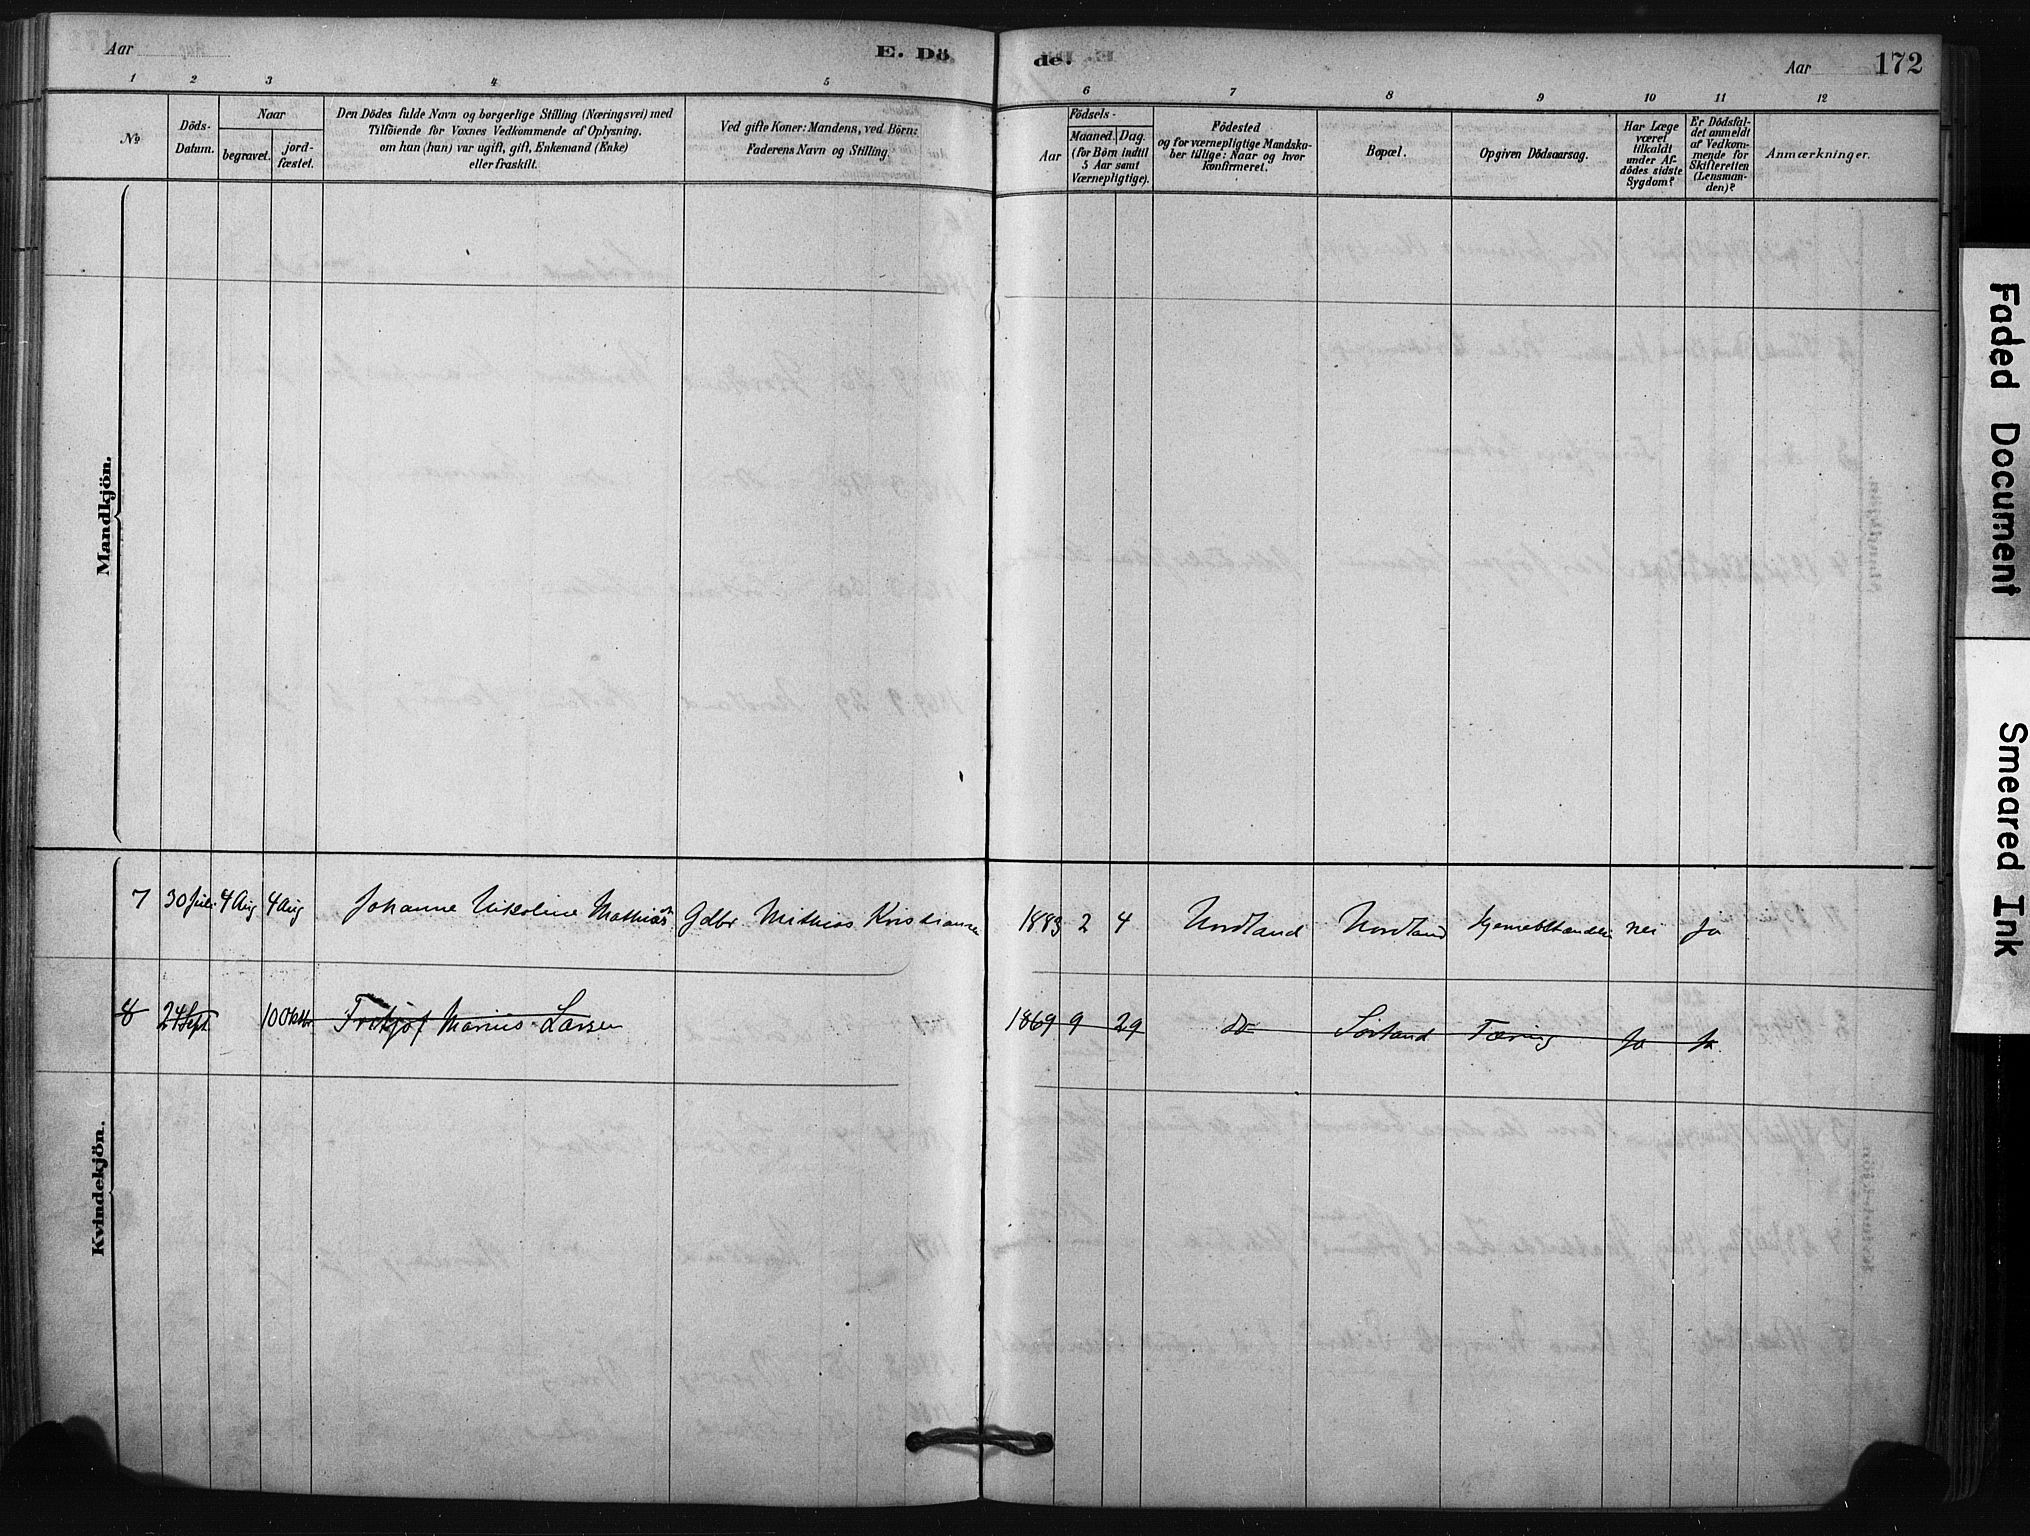 Aar
E. Dö
de.
Aar
172
1 2 3 4 5 6 7 8 9 10 11 12
No
Döds-
Datum.
Naar
begravet.
jord-
fæstet.
Den Dödes fulde Navn og borgerlige Stilling (Næringsvei) med
Tilföiende for Voxnes Vedkommende af Oplysning.
om han (hun) var ugift, gift, Enkemand (Enke)
eller fraskilt.
Ved gifte Koner: Mandens, ved Börn:
Faderens Navn og Stilling.
Födsels-
Aar
Maaned. Dag.
(for Börn indtil
5 Aar samt
Værnepligtige).
Födested
og for værnepligtige Mandska-
ber tillige: Naar og hvor
konfirmeret.
Bopæl.
Opgiven Dödsaarsag.
Har Læge
været
tilkaldt
under Af-
dödes sidste
Sygdom?
Er Dödsfal-
det anmeldt
af Vedkom-
mende for
Skifteretten
(Lensman-
den)?
Anmærkninger.
Mandkjön.
7 30 Juli 4 Aug 4 Aug Johanne Nikoline Mathiasdr Gdbr Mathias Kristiansen 1883 2 4 Nordland Nordland nei Ja
8 24 Sept 10 Oktbr Fritjof Marius Larsen 1869 9 29 do Sörland Tæring Ja Ja
Kvindekjön.
Faded Document
Smeared Ink